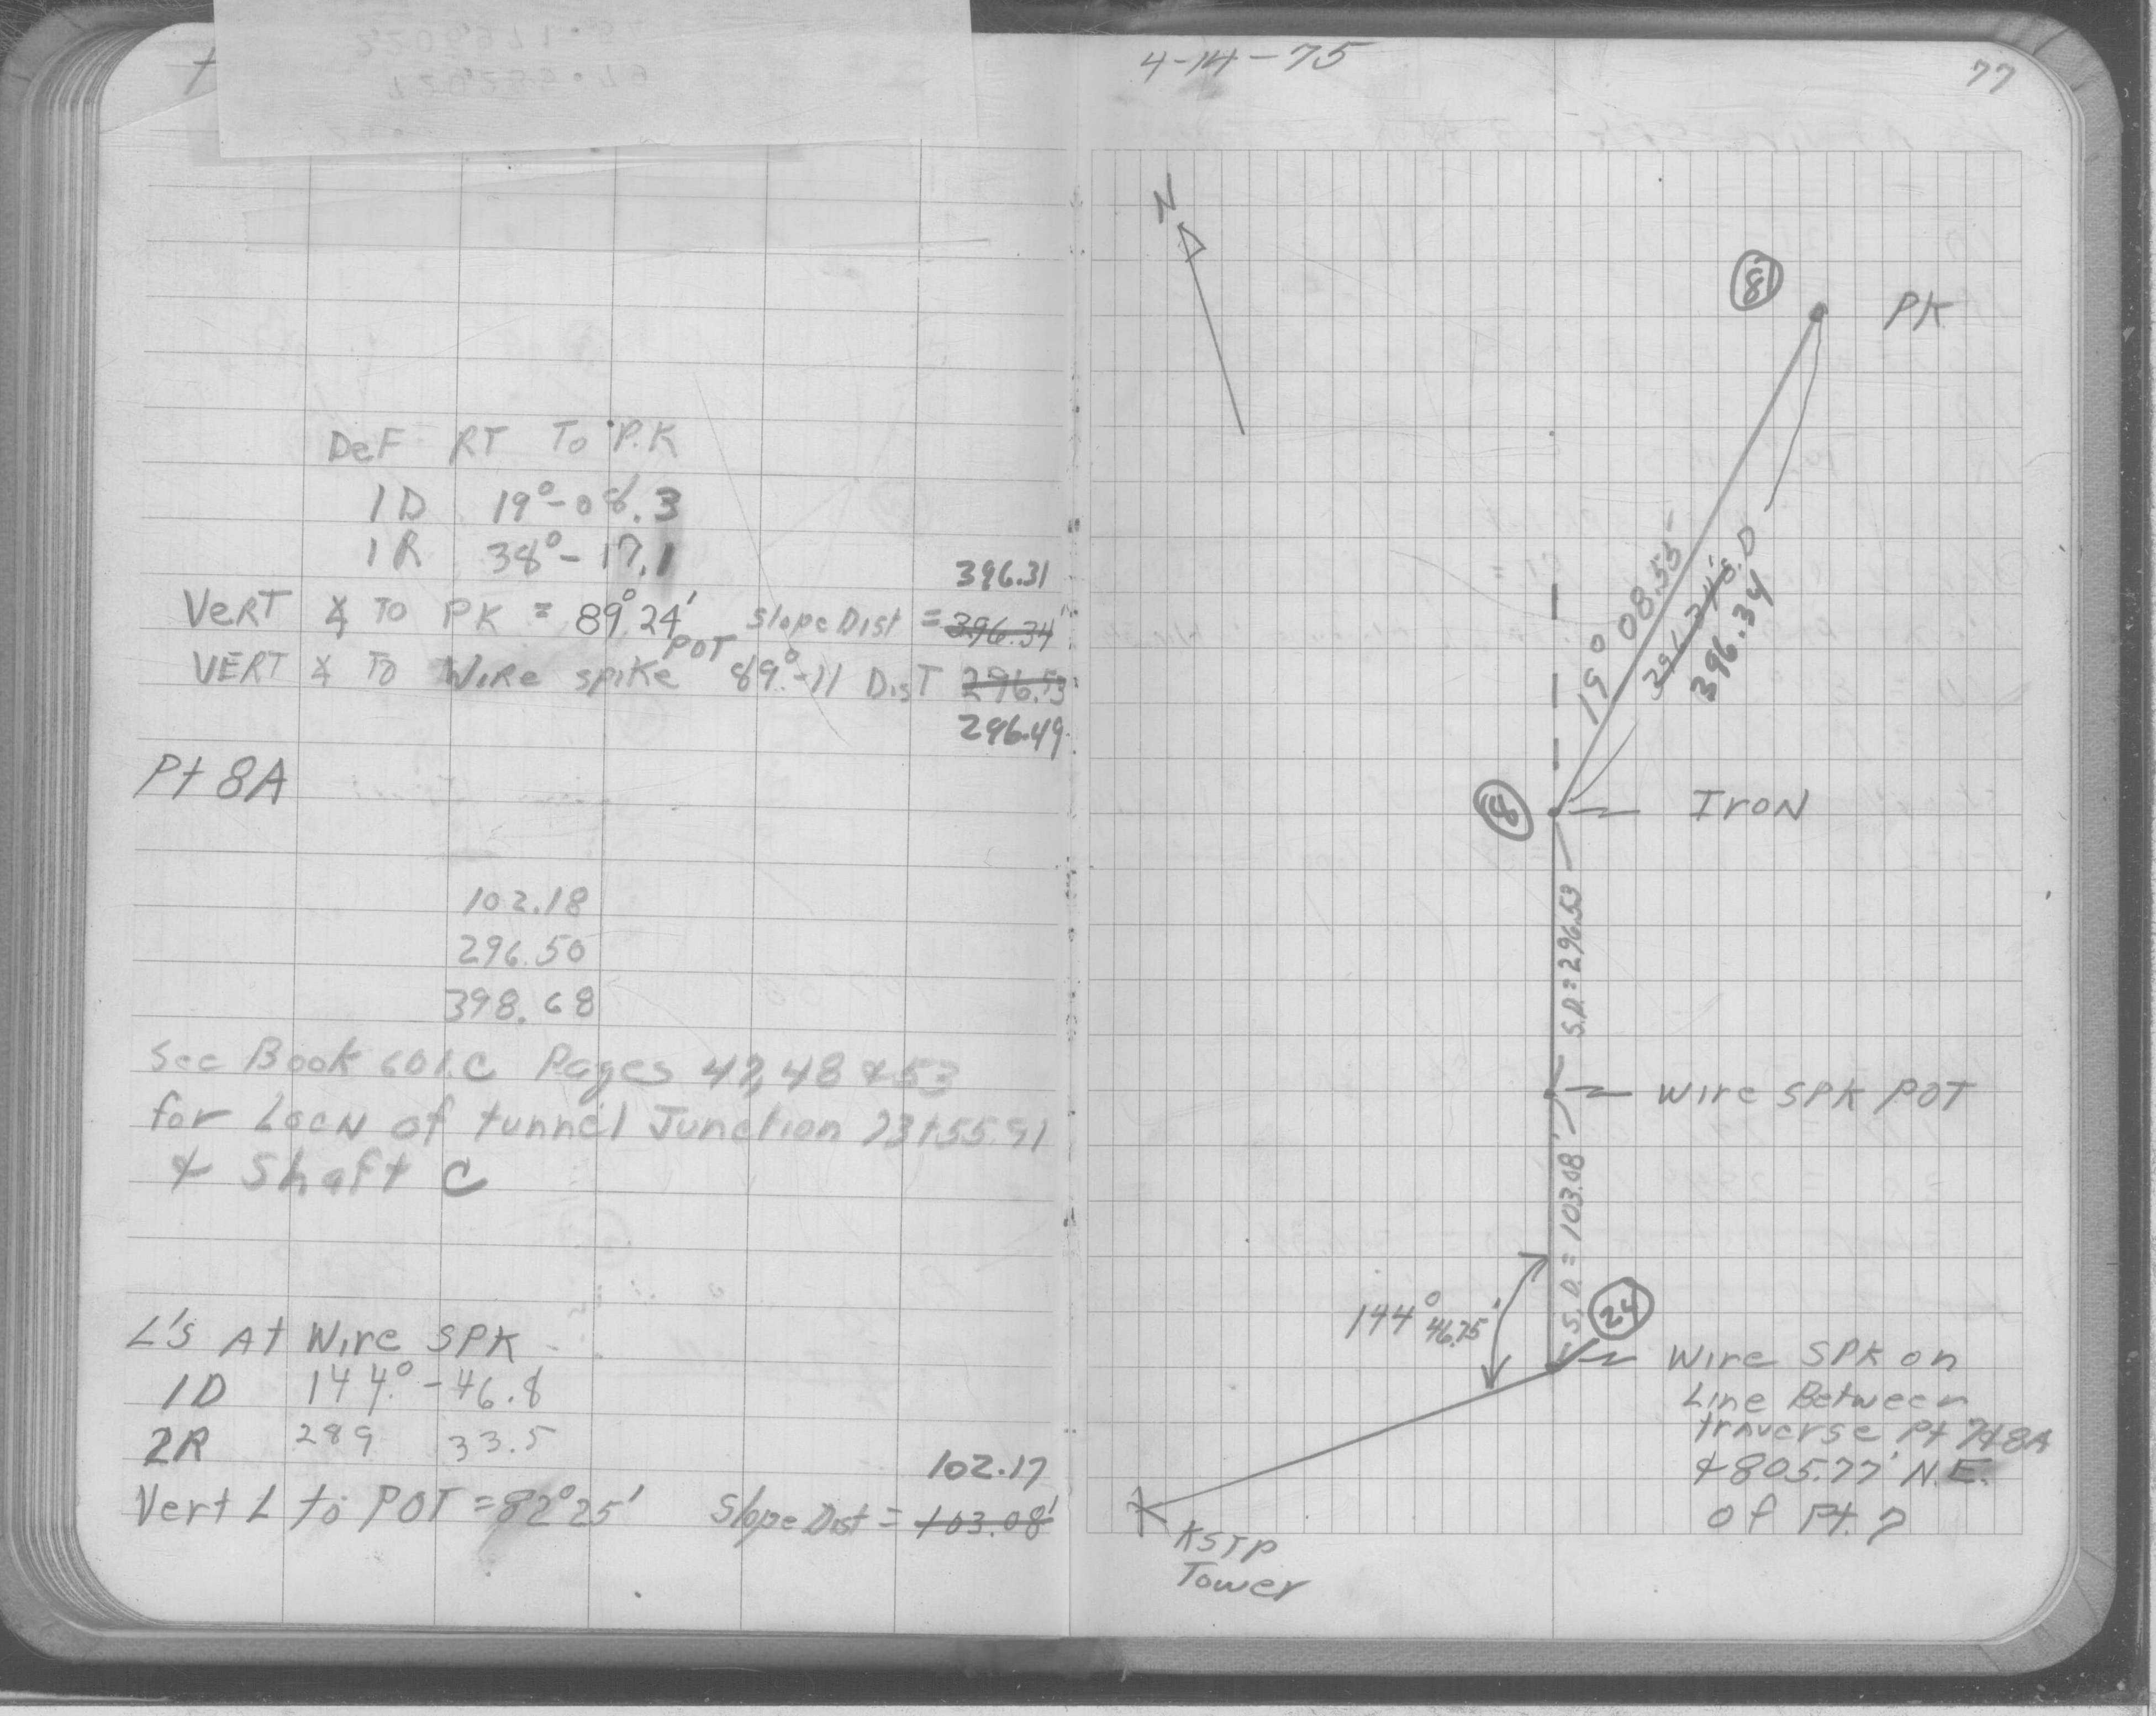 4-14-75
77
DeF RT To P.K
1D 19°-08.3
1R 38°-17.1
396.31
VerT ∡ TO PK = 89°24' Slope Dist = 396.34
POT
VERT ∡ TO Wire spike 89°-11 DisT 296.53
296.49
Pt 8A
102.18
296.50
398.68
See Book 601.C Pages 47, 48 & 53
for Locn of tunnel Junction 23+55.91
& Shaft C
L's At Wire SPK
1D 144°-46.8
2R 289 33.5
102.17
Vert L to POT = 82°25' Slope Dist = 103.08'
N
81
PK
19° 08.55'
396.34 S.D
396.34
IroN
S.D. = 296.53
Wire SPK POT
S.D. = 103.08'
144° 46.75'
24
Wire SPK on
Line Between
traverse Pt 7&8A
& 805.77' N.E.
of Pt. 7
KSTP
Tower